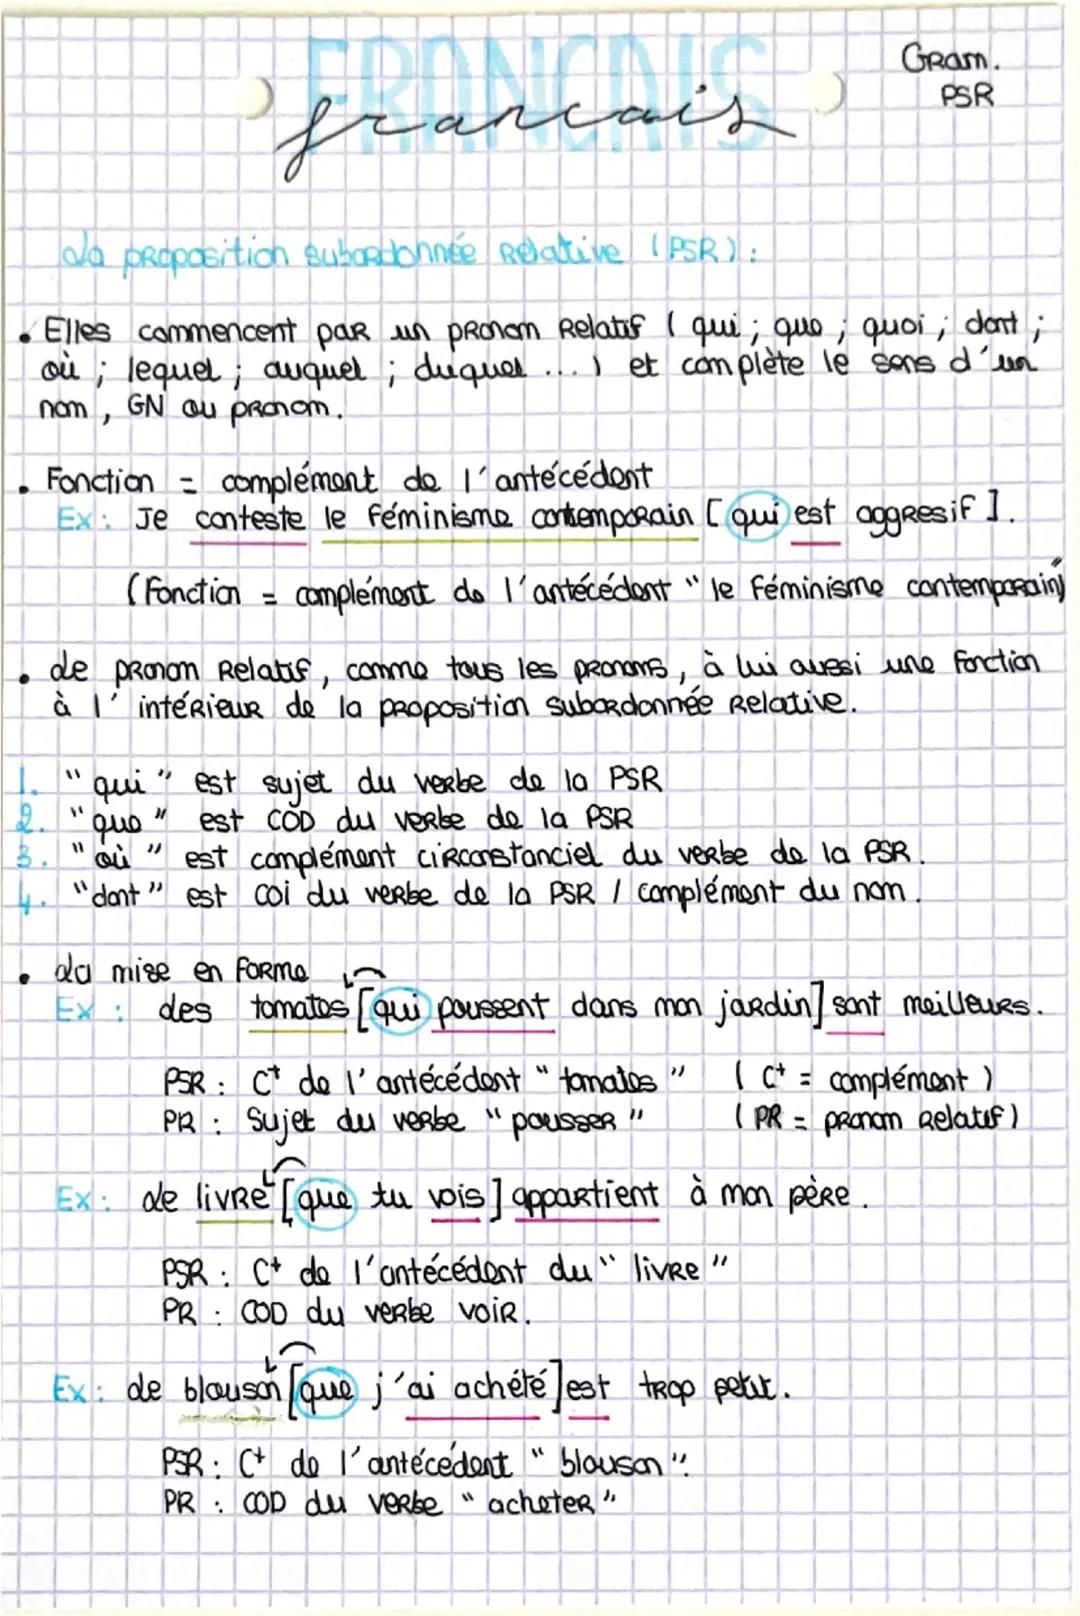 FRANCAIS
francais
Gram.
PSR
La proposition subordonnée relative (PSR) :
• Elles commencent par un pronom relatif ( qui ; que ; quoi ; dont ;
où ; lequel ; auquel ; duquel ... ) et complète le sens d'un
nom , GN ou pronom.
• Fonction = complément de l'antécédent
Ex : Je conteste le féminisme contemporain [ qui est aggresif ].
(Fonction = complément de l'antécédent " le féminisme contemporain")
• Le pronom relatif, comme tous les pronoms, à lui aussi une fonction
à l'intérieur de la proposition subordonnée relative.
1. "qui" est sujet du verbe de la PSR
2. "que" est COD du verbe de la PSR
3. "où" est complément circonstanciel du verbe de la PSR.
4. "dont" est coi du verbe de la PSR / complément du nom.
• La mise en forme
Ex : des tomates [qui poussent dans mon jardin] sont meilleurs.
PSR : C+ de l'antécédent "tomates" ( C+ = complément )
PR : Sujet du verbe "pousser" ( PR = pronom relatif )
Ex : Le livre [que tu vois] appartient à mon père.
PSR : C+ de l'antécédent du "livre"
PR : COD du verbe voir.
Ex : Le blouson [que j'ai achété] est trop petit.
PSR : C+ de l'antécédent "blouson".
PR : COD du verbe "acheter"